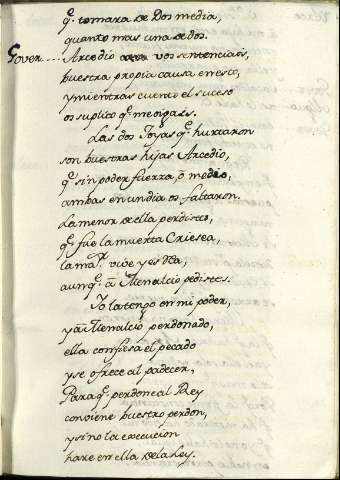 q.e tomara de Dos media,
quanto mas una de dos.
Gover.... Arcedio vos sentenciais,
buestra propia causa en esto,
y mientras cuento el suceso
os suplico q.e me oigais.
Las dos Joyas q.e hurtaron
son buestras hijas Arcedio,
q.e sin poder fuerza, ò medio,
ambas en un dia os faltaron.
La menor de ella perdisteis,
q.e fue la muerta Criesea,
la ma.r vive y es
aunq.e à Menalcio pedistes.
Yo la tengo en mi poder,
y à Menalcio perdonado,
ella confiesa el pecado
y se ofrece al padecer,
Para q.e perdone al Rey
conviene buestro perdon,
y si no la execucion
hare en ella de la Ley.